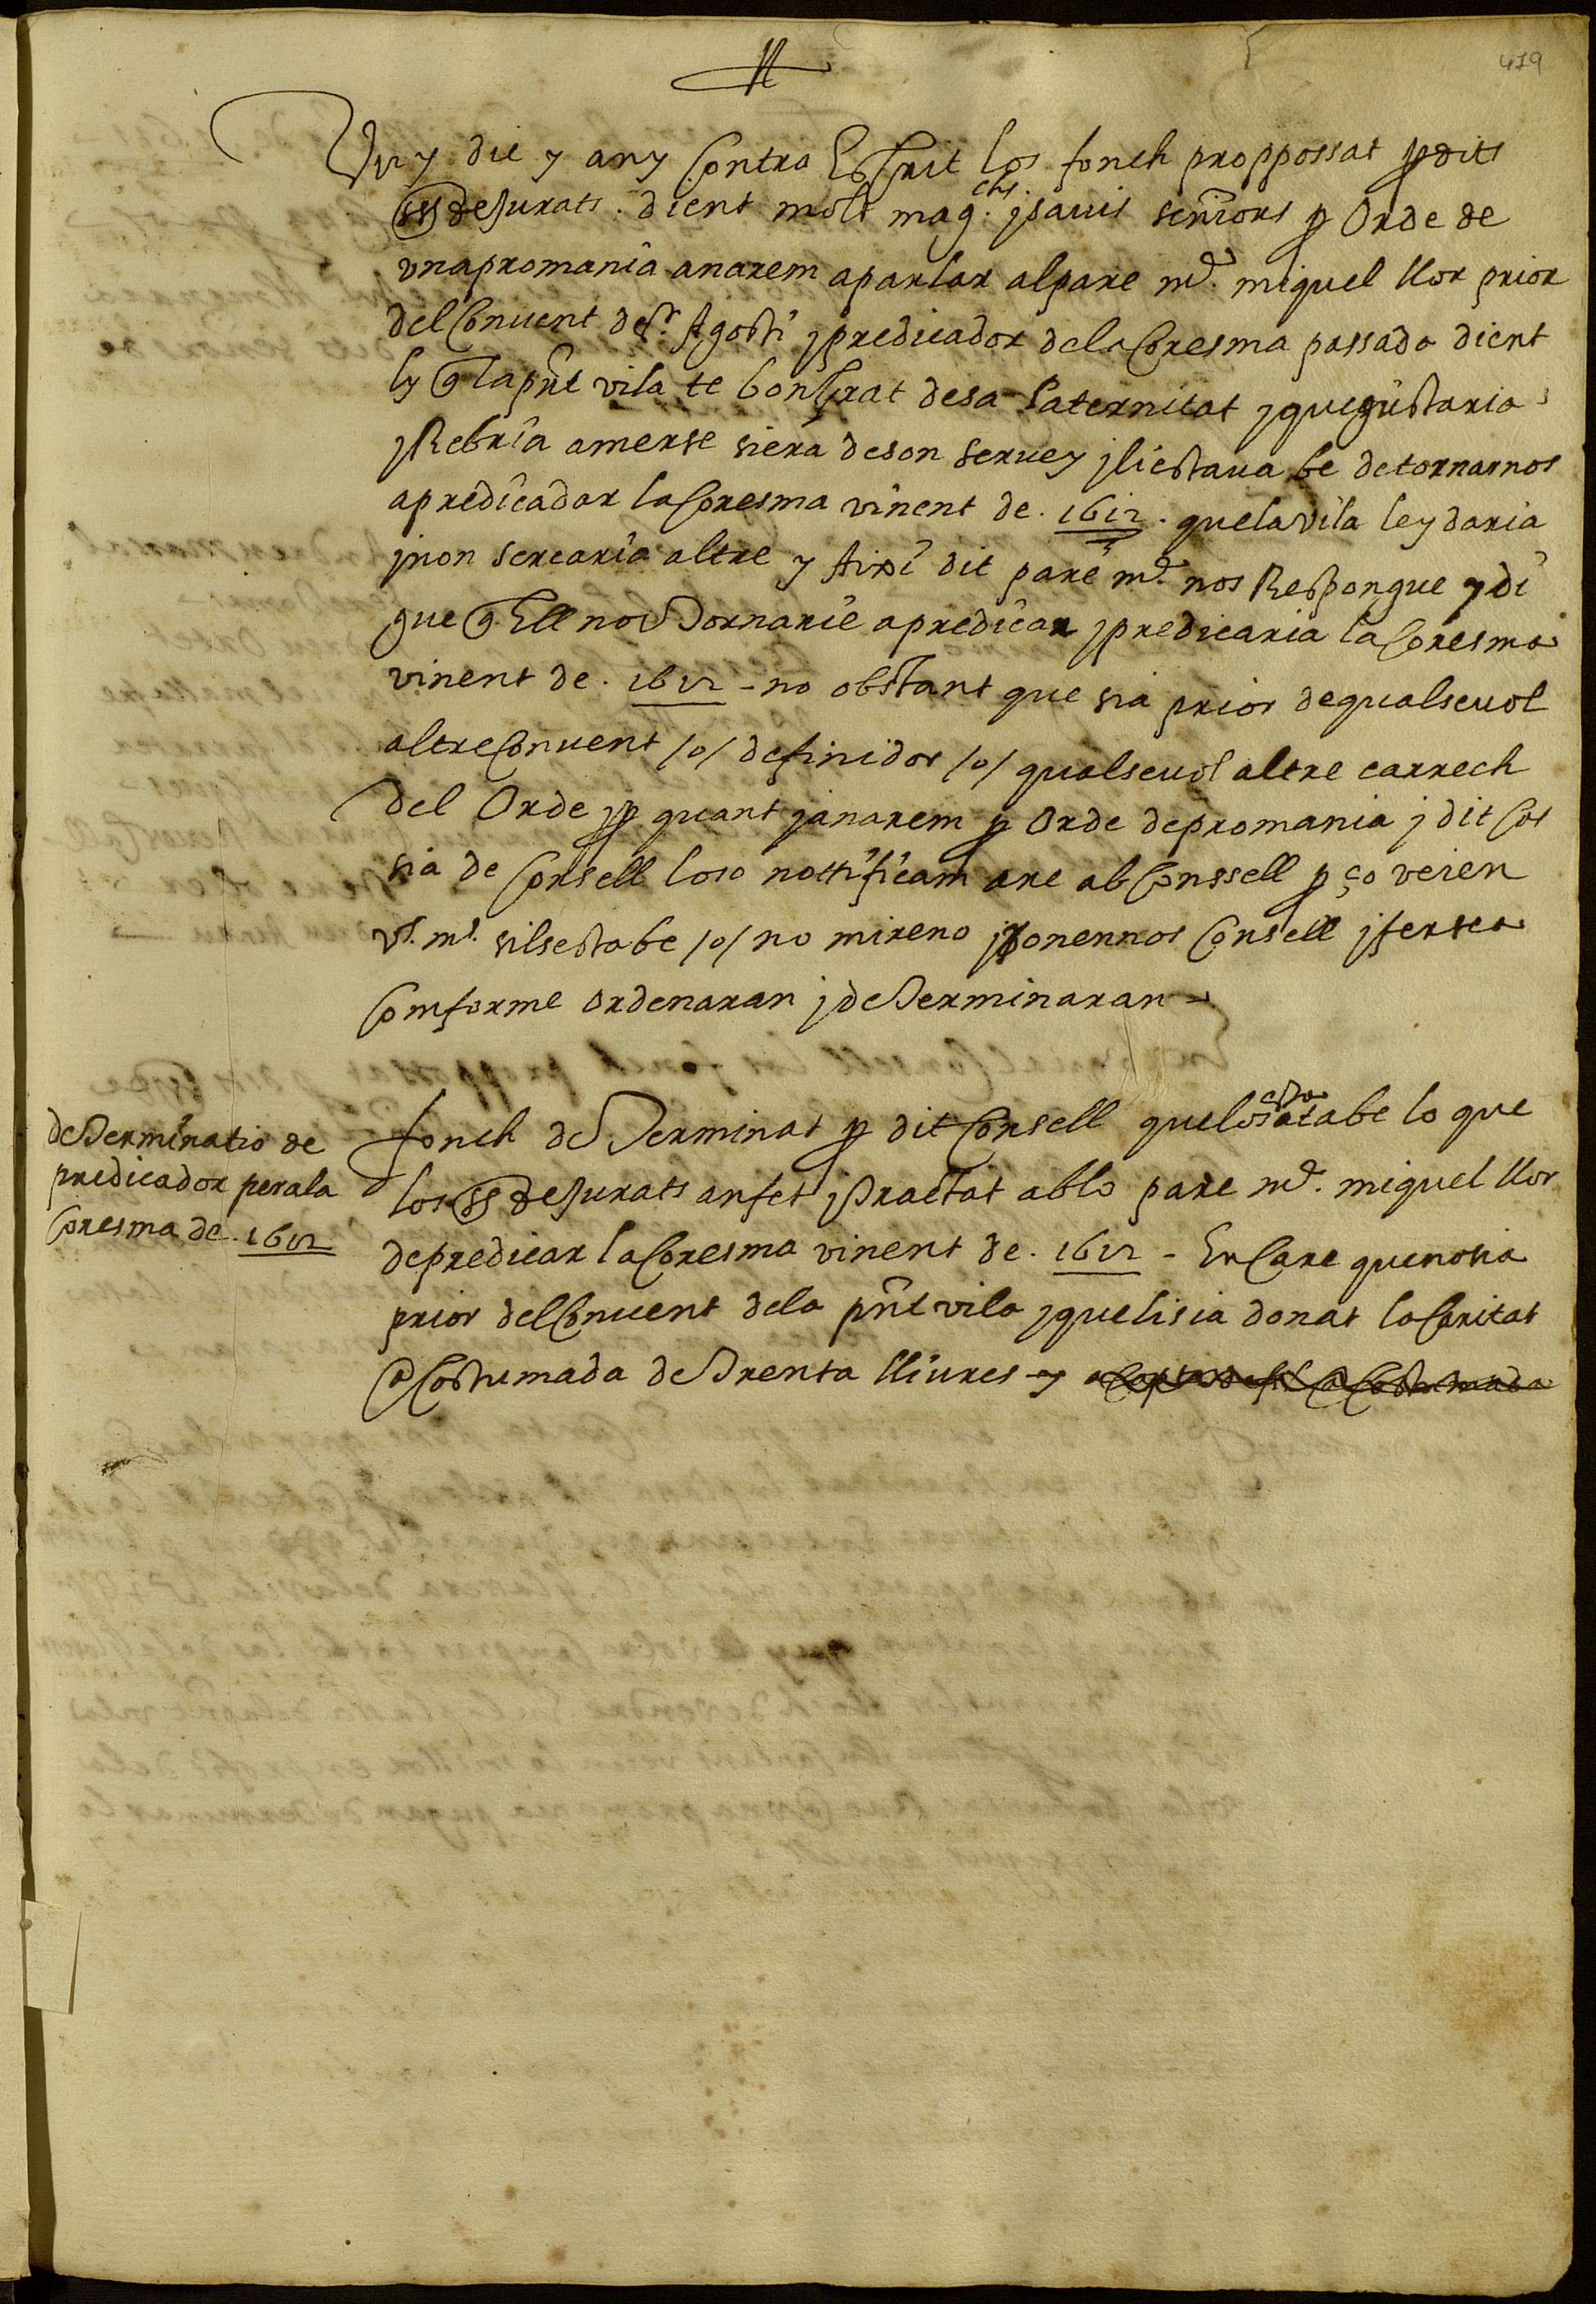 419
Vuy die y any contra Escrit los fonch proppossat p dits
ss de Jurats. dient molt mag.chs. j sauis senñors p Orde de
vna promania anarem a parlar al pare mº. miquel llor prior
del Conuent de St. Agosti j predicador de la Coresma passada dient
ly q la pñt vila te bon grat de sa Paternitat j que gustaria
j Rebria a merse si era de son seruey j li estaua be de tornarnos
a predicador la Coresma vinent de . 1612 . que la vila ley daria
j non sercaria altre y Aixi dit pare mº. nos Respongue y di
gue q Ell nos tornarie a predicar j predicaria la Coresma
vinent de . 1612 - no obstant que sia prior de qualseuol
altre Conuent /o/ definidor /o/ qualseuol altre carrech
del Orde j p quant j anarem p Orde de promania j dit Cos
sia de Consell loso nottificam are ab Conssell p ço veien
vs. ms. sils esta be /o/ no mireno j donennos Consell j fer sea
Comforme ordenaran j determinaran -
determinatio de
predicador per a la
Coresma de . 1612
fonch determinat p dit Consell que los esta be lo que
los ss de Jurats an fet j tractat ab lo pare mº. miquel llor
de predicar la Coresma vinent de . 1612 - En Care que no sia
prior del Conuent de la pñt vila j que li sia donat la Caritat
a Costumada de trenta lliures - y